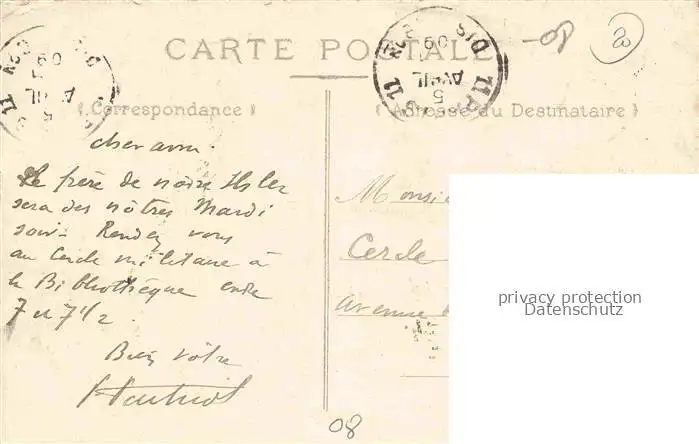 CARTE POSTALE
Correspondance
Adresse du Destinataire
cher ami.
Le frère de notre
sera des nôtres Mardi
soir. Rendez vous
au Cercle militaire à
la Bibliothèque entre
7 et 7 1/2.
Bien vôtre
Monsie
Cercle
avenue
privacy protection
Datenschutz
11 AVRIL 09
08
20
08